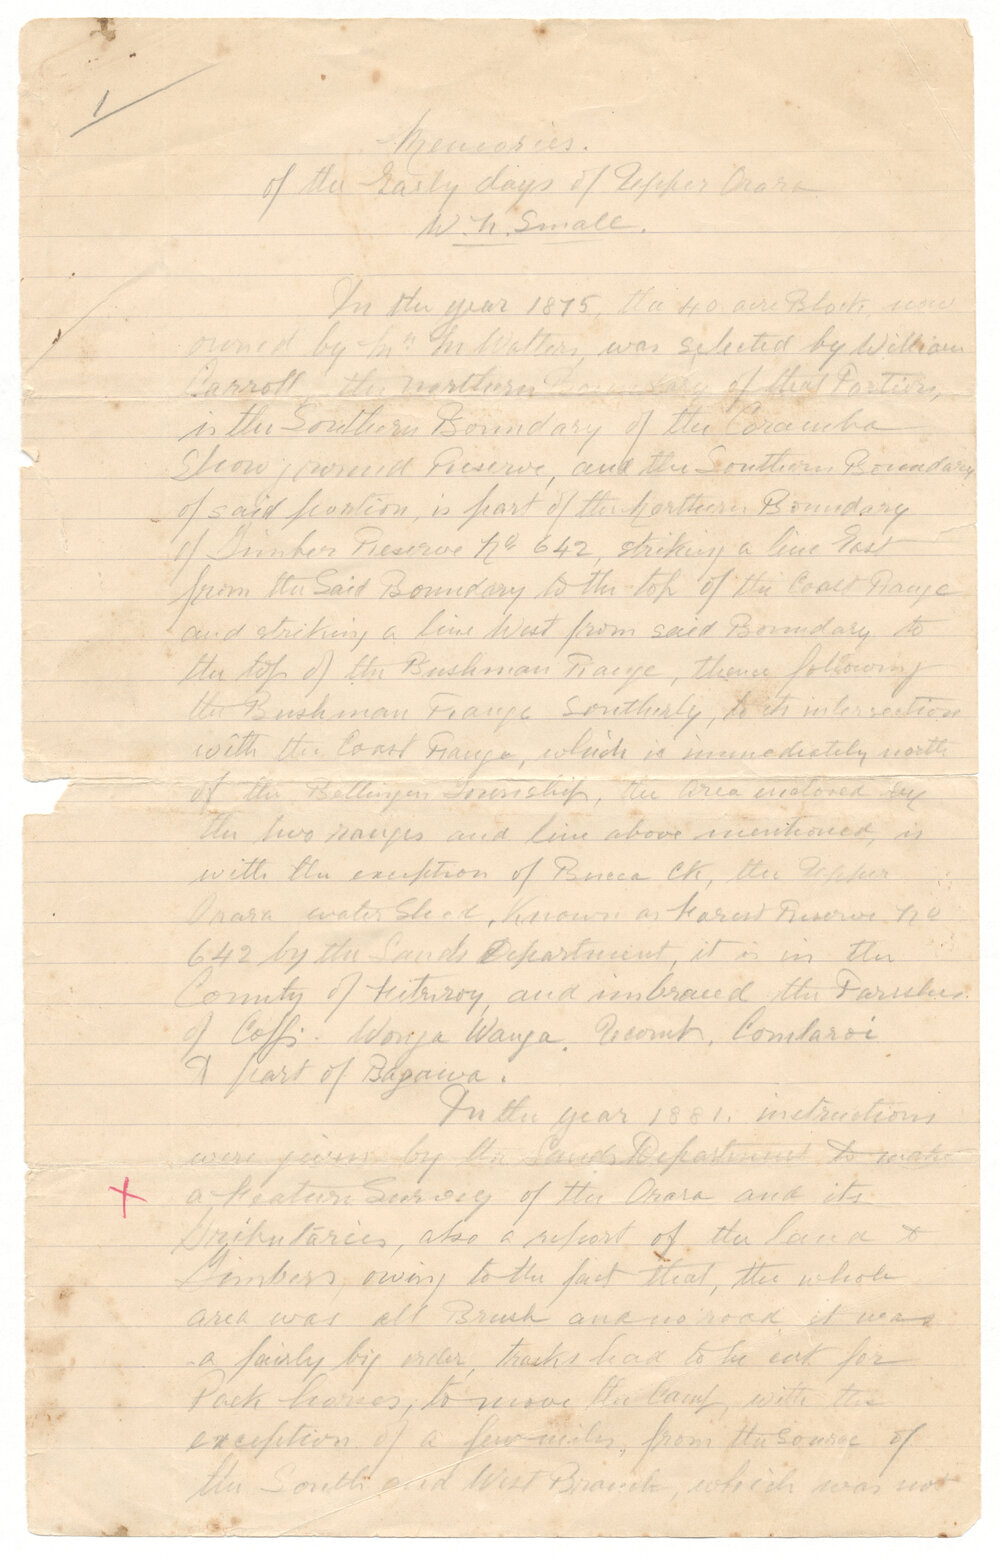 1
Memories.
of the Early days of Upper Orara
W. N. Small.
In the year 1875, the 40 acre Block, now
owned by Mr. M Walters, was selected by William
Carroll, the northern Boundary of that Portion,
is the Southern Boundary of the Coramba
Show ground Reserve, and the Southern Boundary
of said portion, is part of the Northern Boundary
of Timber Reserve No 642, striking a line East
from the Said Boundary to the top of the Coast Range
and striking a line West from said Boundary to
the top of the Bushman Range, thence following
the Bushman Range Southerly, to its intersection
with the Coast Range, which is immediately north
of the Bellingen Township, the area enclosed by
the two ranges and line above mentioned, is
with the exception of Bucca Ck, the Upper
Orara water Shed, Known as Forest Reserve No
642 by the Lands Department, it is in the
County of Fitzroy, and imbraced the Parishes
of Coffs. Wonga Wanga, Comlaroi
& part of Bagawa.
In the year 1881. instructions
were given by the Lands Department to make
a Feature Survey of the Orara and its
Tributaries, also a report of the land &
Timbers, owing to the fact that, the whole
area was all Brush and no road it was
a fairly big order, tracks had to be cut for
Pack horses, to move the Camp, with the
exception of a few miles, from the source of
the South and West Branch, which was not